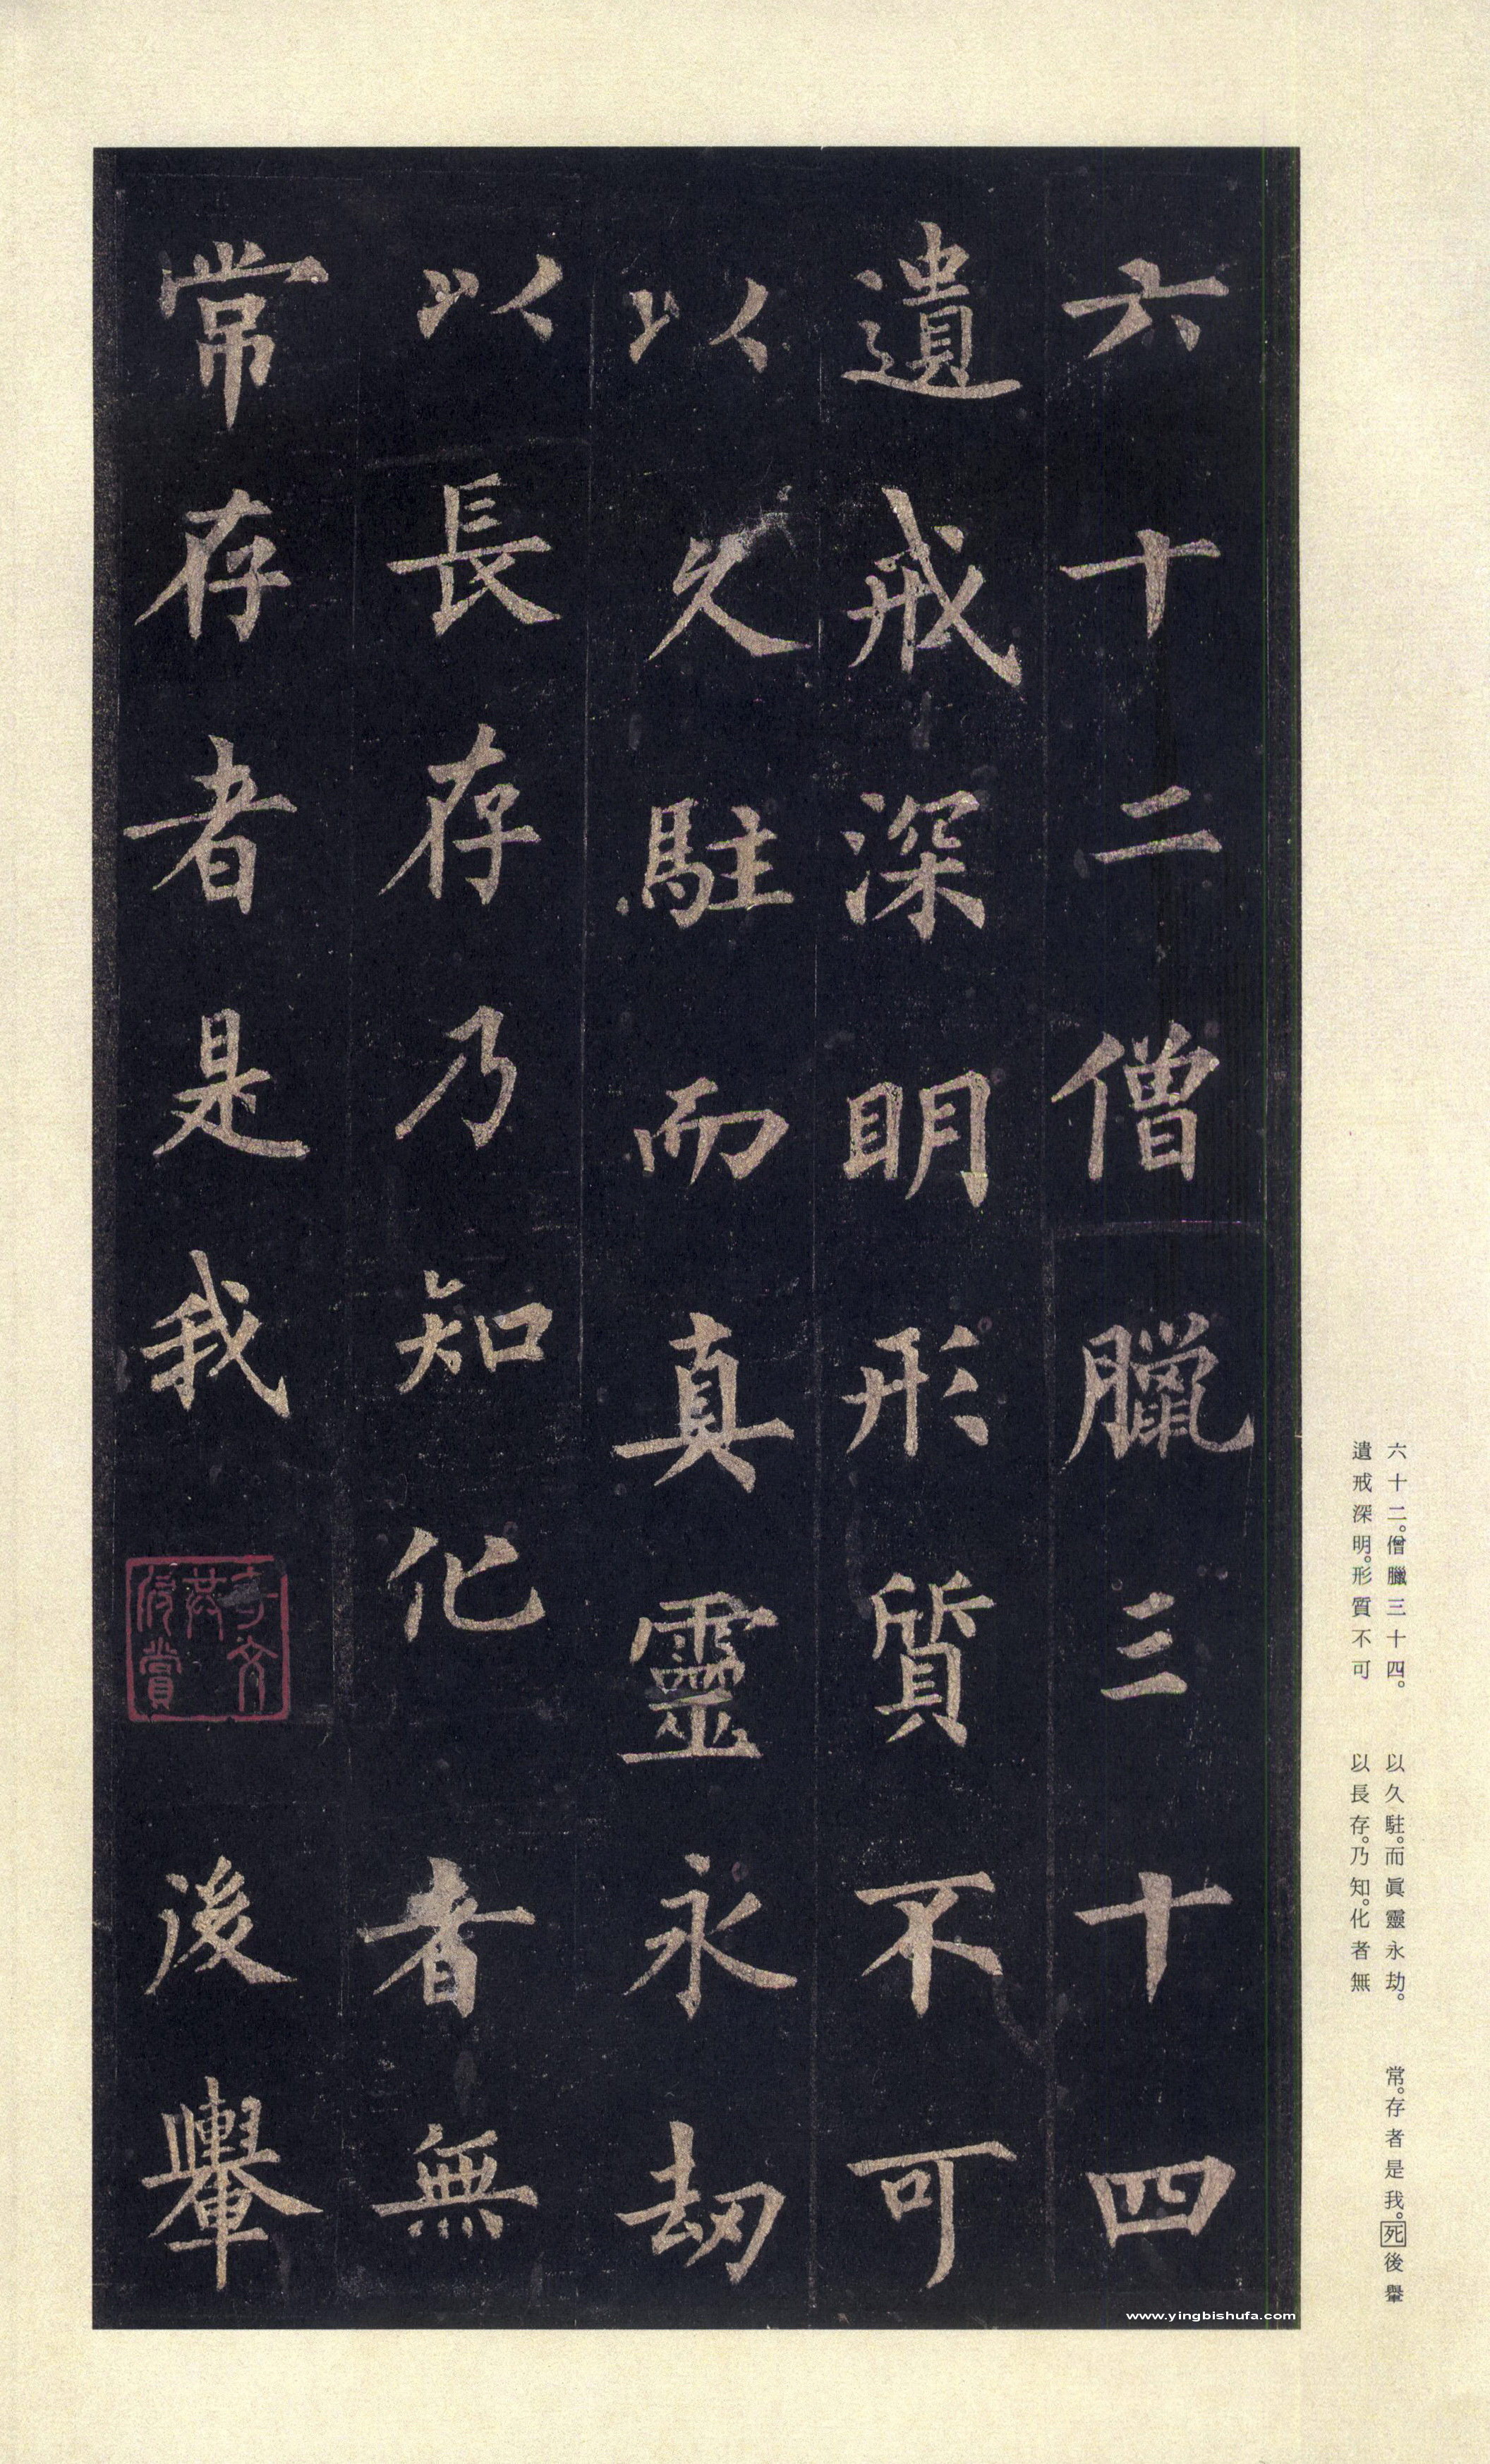 六十二僧臘三十四
遺戒深明形質不可
以久駐而真靈永劫
以長存乃知化者無
常存者是我後轝
六十二。僧臘三十四。
遺戒深明。形質不可
以久駐。而眞靈永劫。
以長存。乃知。化者無
常。存者是我。死後轝
www.yingbishufa.com